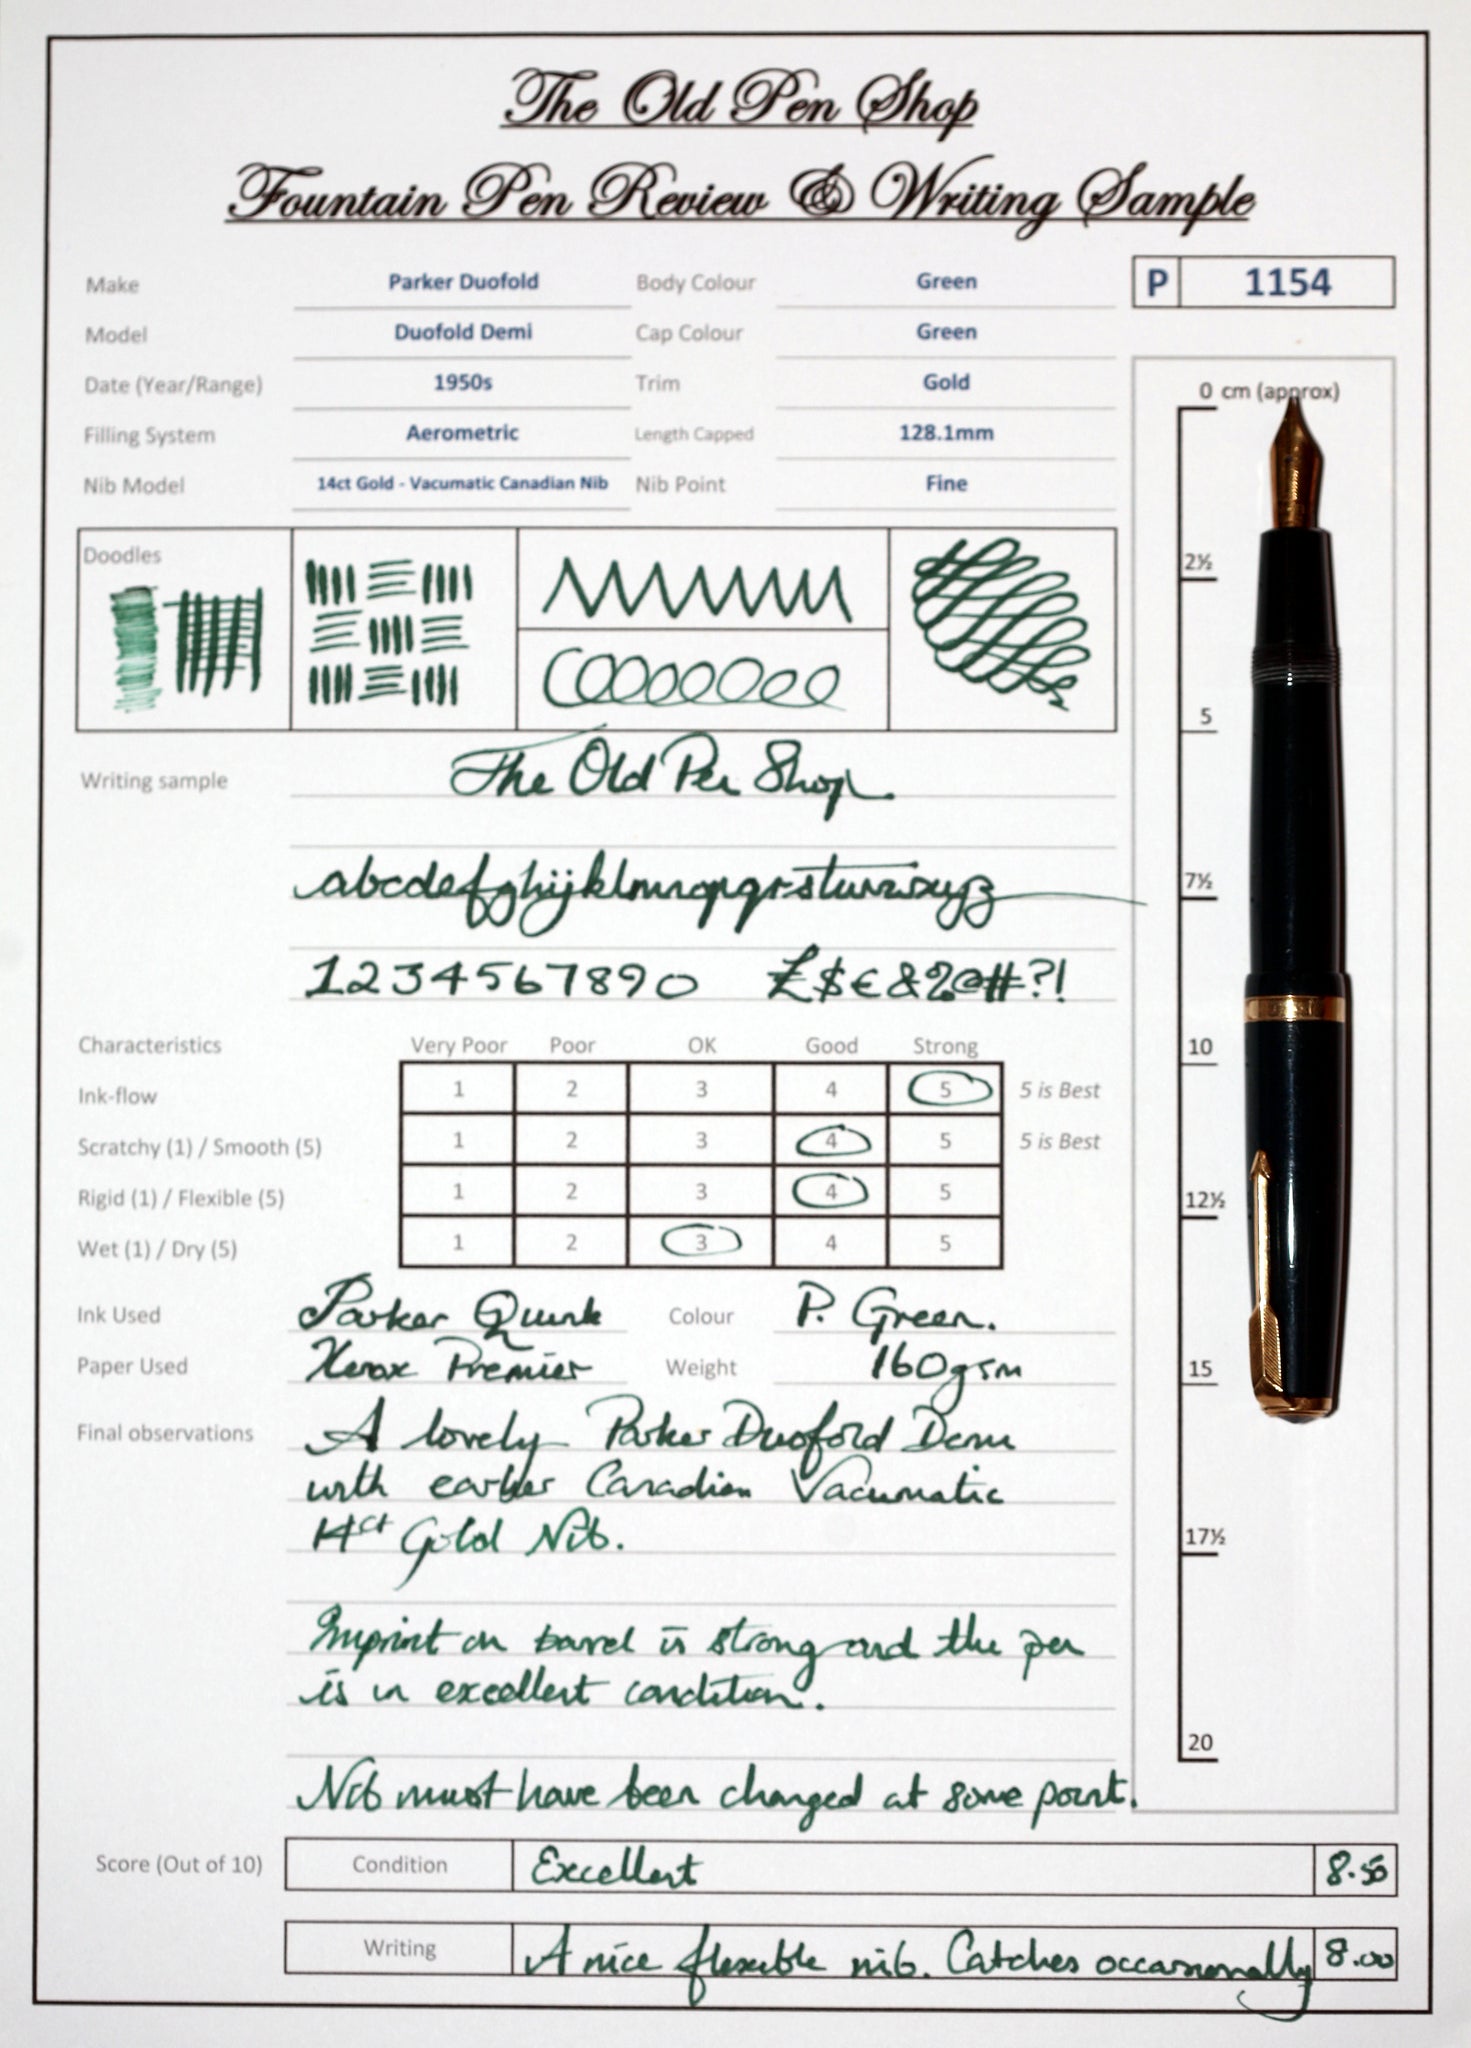 The Old Pen Shop
Fountain Pen Review & Writing Sample
Make Parker Duofold Body Colour Green P 1154
Model Duofold Demi Cap Colour Green
Date (Year/Range) 1950s Trim Gold
Filling System Aerometric Length Capped 128.1mm
Nib Model 14ct Gold - Vacumatic Canadian Nib Nib Point Fine
0 cm (approx)
2½
5
7½
10
12½
15
17½
20
Doodles
Writing sample The Old Pen Shop
abcdefghijklmnopqrstuvwxyz
1234567890 £$€&%@#?!
Characteristics Very Poor Poor OK Good Strong
Ink-flow 1 2 3 4 5 5 is Best
Scratchy (1) / Smooth (5) 1 2 3 4 5 5 is Best
Rigid (1) / Flexible (5) 1 2 3 4 5
Wet (1) / Dry (5) 1 2 3 4 5
Ink Used Parker Quink Colour P. Green.
Paper Used Xerox Premier Weight 160gsm
Final observations A lovely Parker Duofold Demi
with earlier Canadian Vacumatic
14ct Gold Nib.
Imprint on barrel is strong and the pen
is in excellent condition.
Nib must have been changed at some point.
Score (Out of 10) Condition Excellent 8.50
Writing A nice flexible nib. Catches occasionally 8.00